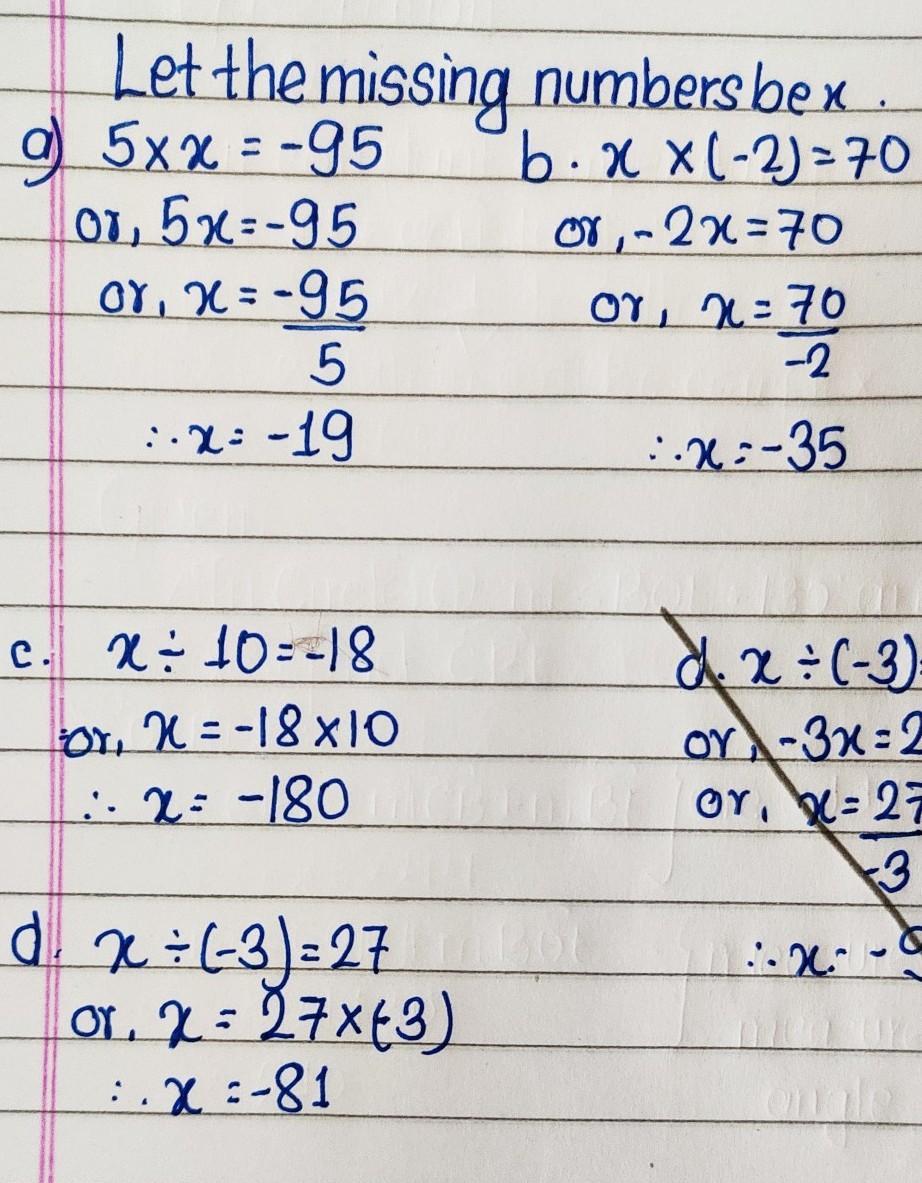 Let the missing numbers be x.
a) 5 × x = -95
or, 5x = -95
or, x = -95
5
∴ x = -19
b. x × (-2) = 70
or, -2x = 70
or, x = 70
-2
∴ x = -35
c. x ÷ 10 = -18
or, x = -18 × 10
∴ x = -180
d. x ÷ (-3)
or, -3x = 2
or, x = 27
-3
∴ x = -9
d. x ÷ (-3) = 27
or, x = 27 × (-3)
∴ x = -81